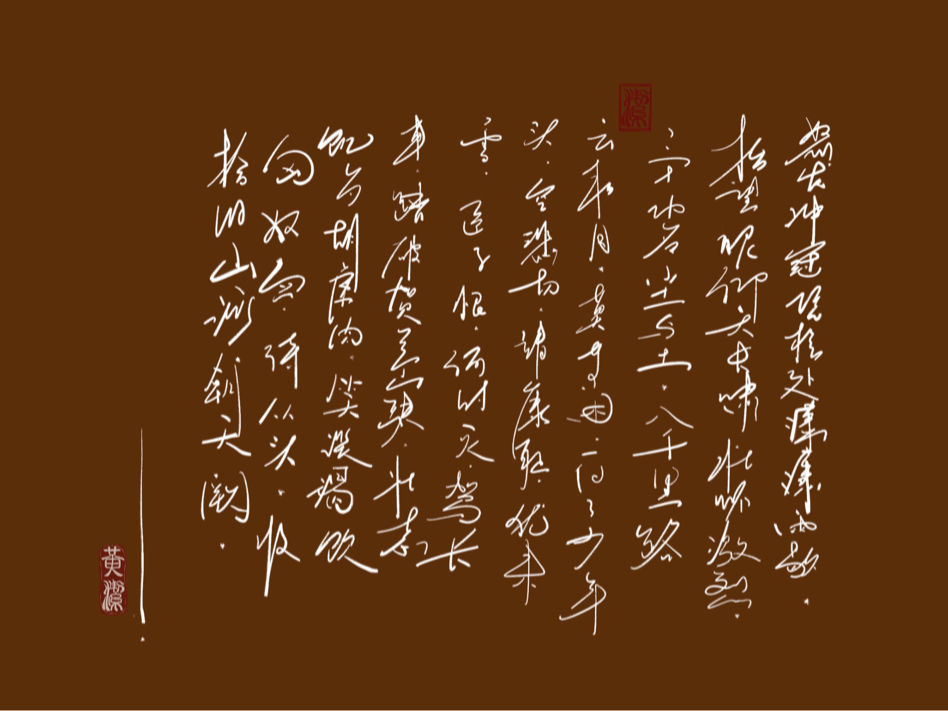 怒发冲冠凭栏处潇潇雨歇.
抬望眼仰天长啸壮怀激烈.
三十功名尘与土.八千里路
云和月.莫等闲.白了少年
头.空悲切.靖康耻.犹未
雪.臣子恨.何时灭.驾长
車.踏破贺兰山缺.壮志
飢餐胡虏肉.笑谈渴饮
匈奴血.待从头.收
拾旧山河朝天阙.
潔
黃潔